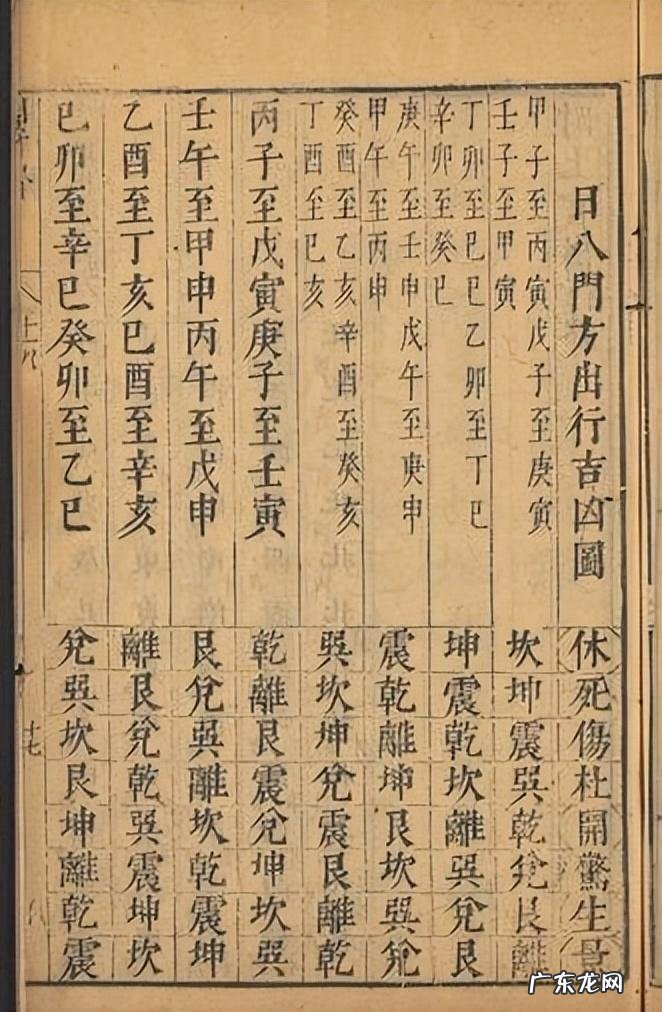 日八門方出行吉凶圖
休死傷杜開驚生景
甲子至丙寅戊子至庚寅
壬子至甲寅
坎坤震巽乾兌艮離
丁卯至巳巳乙卯至丁巳
辛卯至癸巳
坤震乾坎離巽兌艮
庚午至壬申戊午至庚申
甲午至丙申
震乾離坤艮坎巽兌
癸酉至乙亥辛酉至癸亥
丁酉至巳亥
巽坎坤兌震艮離乾
丙子至戊寅庚子至壬寅
乾離艮震兌坤坎巽
壬午至甲申丙午至戊申
艮兌巽離坎乾震坤
乙酉至丁亥巳酉至辛亥
離艮兌乾巽震坤坎
巳卯至辛巳癸卯至乙巳
兌巽坎艮坤離乾震
十七
广东龙网